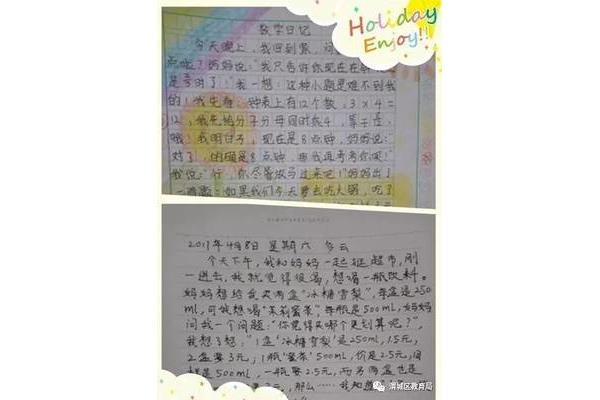 Holiday
Enjoy!!
数学日记
今天晚上,我回到家,问
点啦?妈妈说:"我只告诉你现在在钟
是 时了!"我一想:这种小题是难不到我
的!我先看:钟表上有12个数,3×4=
12,我先给分子分母同时乘4,等于
哦!我明白了,现在是8点钟,妈妈说:
对了,的确是8点钟,再我再考考你吧!
我说:"行,你尽管放马过来吧!"妈妈出了
一道题:如果我们今天要去吃火锅,吃了
2017年4月8日 星期六 多云
今天下午,我和妈妈一起逛超市,刚
一进去,我就觉得很渴,想喝一瓶饮料。
妈妈想给我买两盒"冰糖雪梨",每盒是250
ml,可我想喝"茉莉蜜茶",每瓶是500ml,妈妈
问我一个问题:"你觉得买哪个更划算呢?",
我想了想:"1盒'冰糖雪梨'是250ml,1.5元,
2盒要3元;1瓶'蜜茶'500ml,价是2.5元,同
样是500ml,一瓶要2.5元,而另两盒也是
要3元,那么……我知道
渭城区教育局